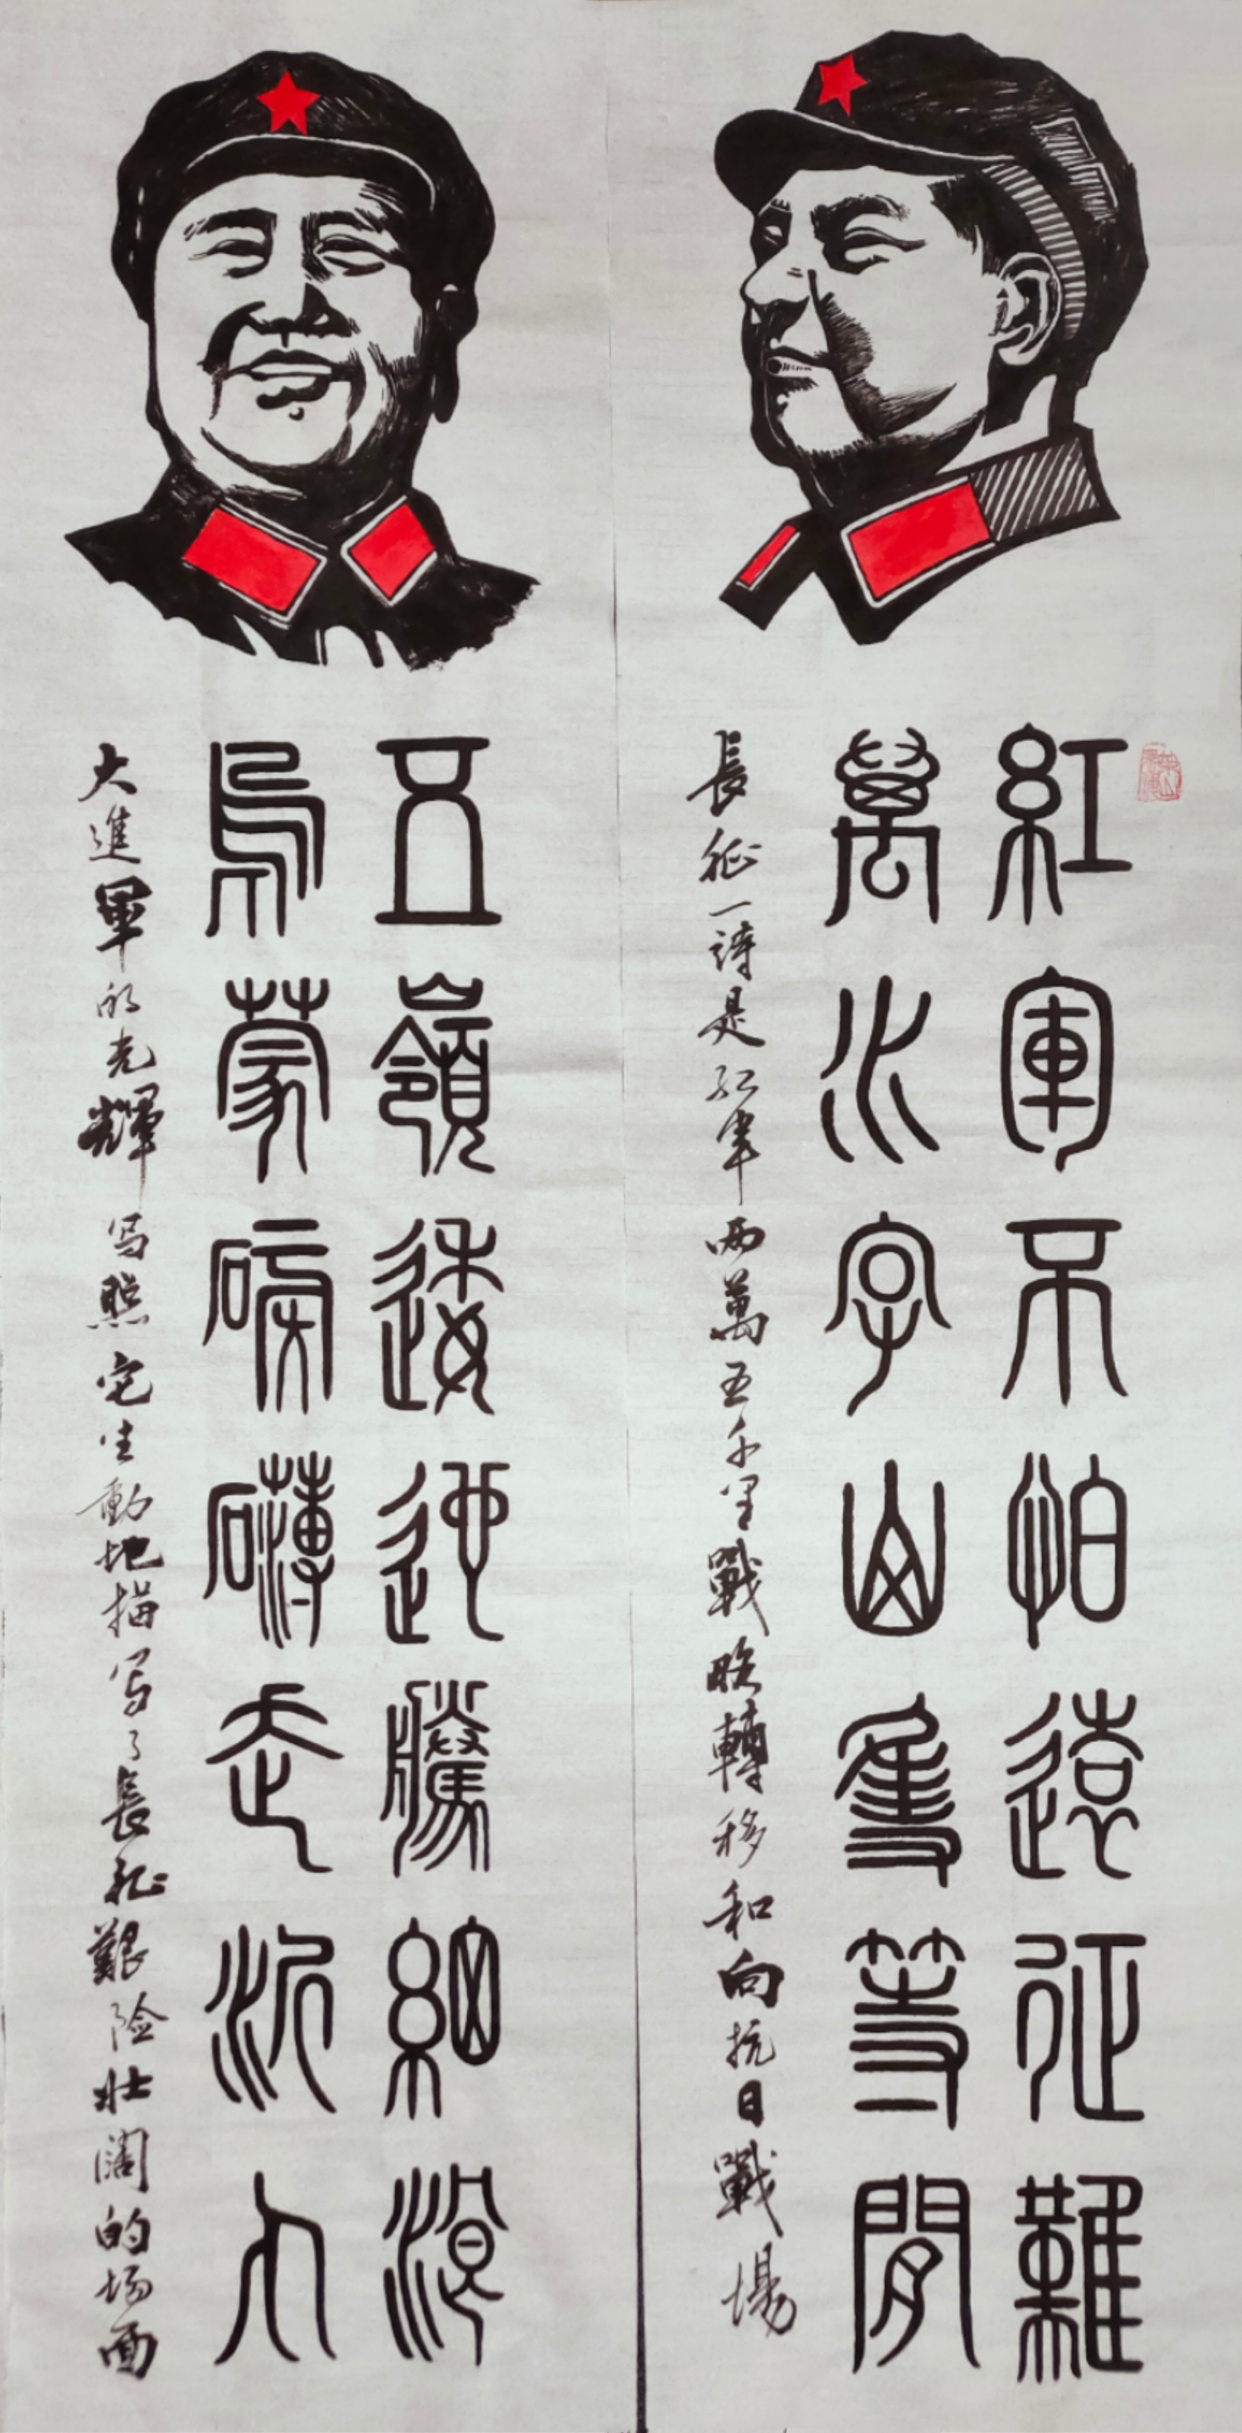 紅軍不怕遠征難
萬水千山隻等閒
長征一詩是红軍两萬五千里戰略轉移和向抗日戰場
五嶺逶迤騰細浪
烏蒙磅礴走泥丸
大進軍的光輝写照它生動地描写了長征艱险壮阔的场面